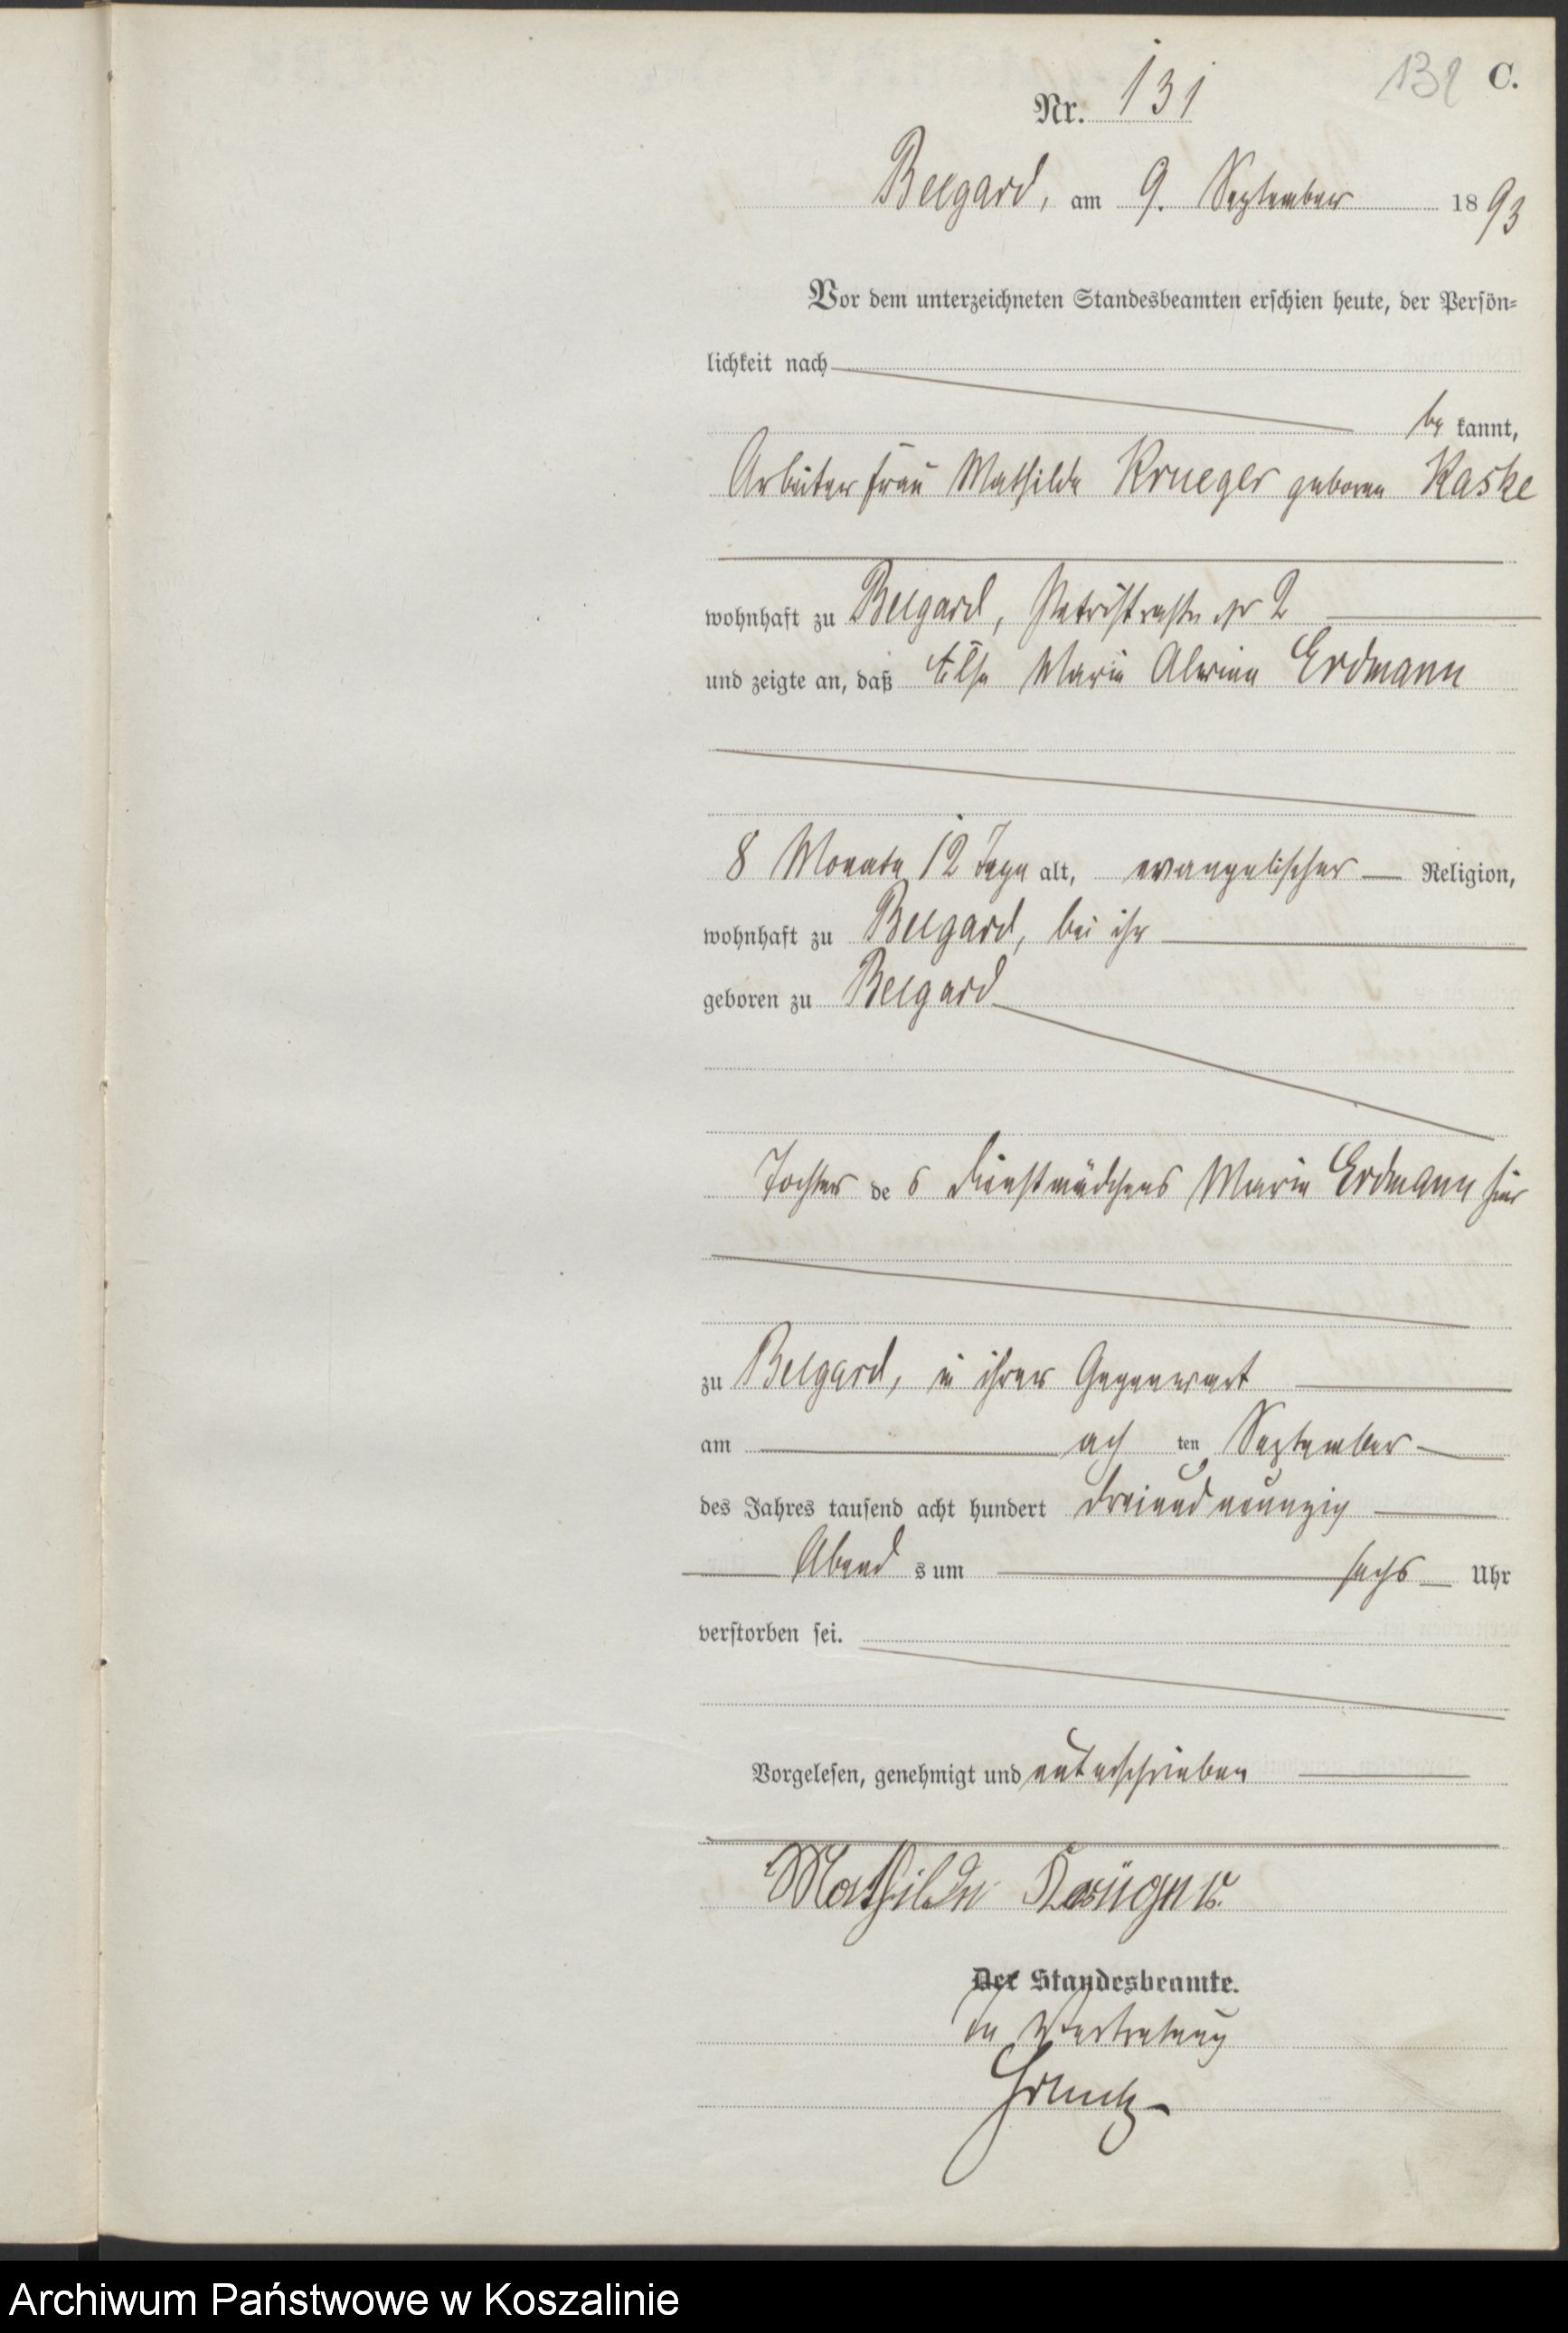 132 C.
Nr. 131
Belgard, am 9. September 1893
Vor dem unterzeichneten Standesbeamten erschien heute, der Persön-
lichkeit nach
be kannt,
Arbeiterfrau Mathilde Krueger geborene Kaske
wohnhaft zu Belgard, 2
und zeigte an, daß Else Marie Alwine Erdmann
8 Monate 12 Tage alt, evangelischer Religion,
wohnhaft zu Belgard, bei ihr
geboren zu Belgard
Tochter de s Dienstmädchens Marie Erdmann hier
zu Belgard, in ihrer Gegenwart
am ach ten September
des Jahres tausend acht hundert dreiundneunzig
Abend s um sechs Uhr
verstorben sei.
Vorgelesen, genehmigt und unterschrieben
Mathilde Krüger
Der Standesbeamte.
In Vertretung
Archiwum Państwowe w Koszalinie